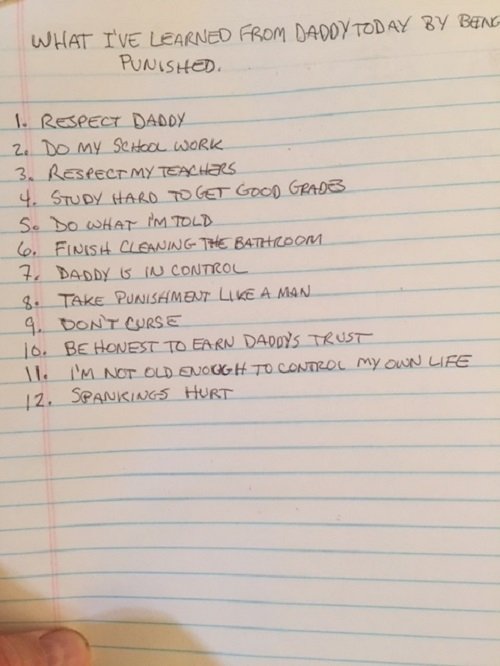 WHAT I'VE LEARNED FROM DADDY TODAY BY BEING
PUNISHED.
1. RESPECT DADDY
2. DO MY SCHOOL WORK
3. RESPECT MY TEACHERS
4. STUDY HARD TO GET GOOD GRADES
5. DO WHAT I'M TOLD
6. FINISH CLEANING THE BATHROOM
7. DADDY IS IN CONTROL
8. TAKE PUNISHMENT LIKE A MAN
9. DON'T CURSE
10. BE HONEST TO EARN DADDY'S TRUST
11. I'M NOT OLD ENOUGH TO CONTROL MY OWN LIFE
12. SPANKINGS HURT